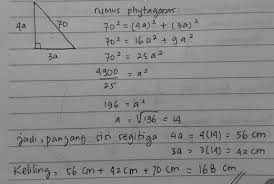 rumus phytagoras:
4a
70
3a
70² = (4a)² + (3a)²
70² = 16a² + 9a²
70² = 25a²
4900/25 = a²
196 = a²
a = √196 = 14
jadi, panjang sisi segitiga 4a = 4(14) = 56 cm
3a = 3(14) = 42 cm
Keliling = 56 cm + 42 cm + 70 cm = 168 cm